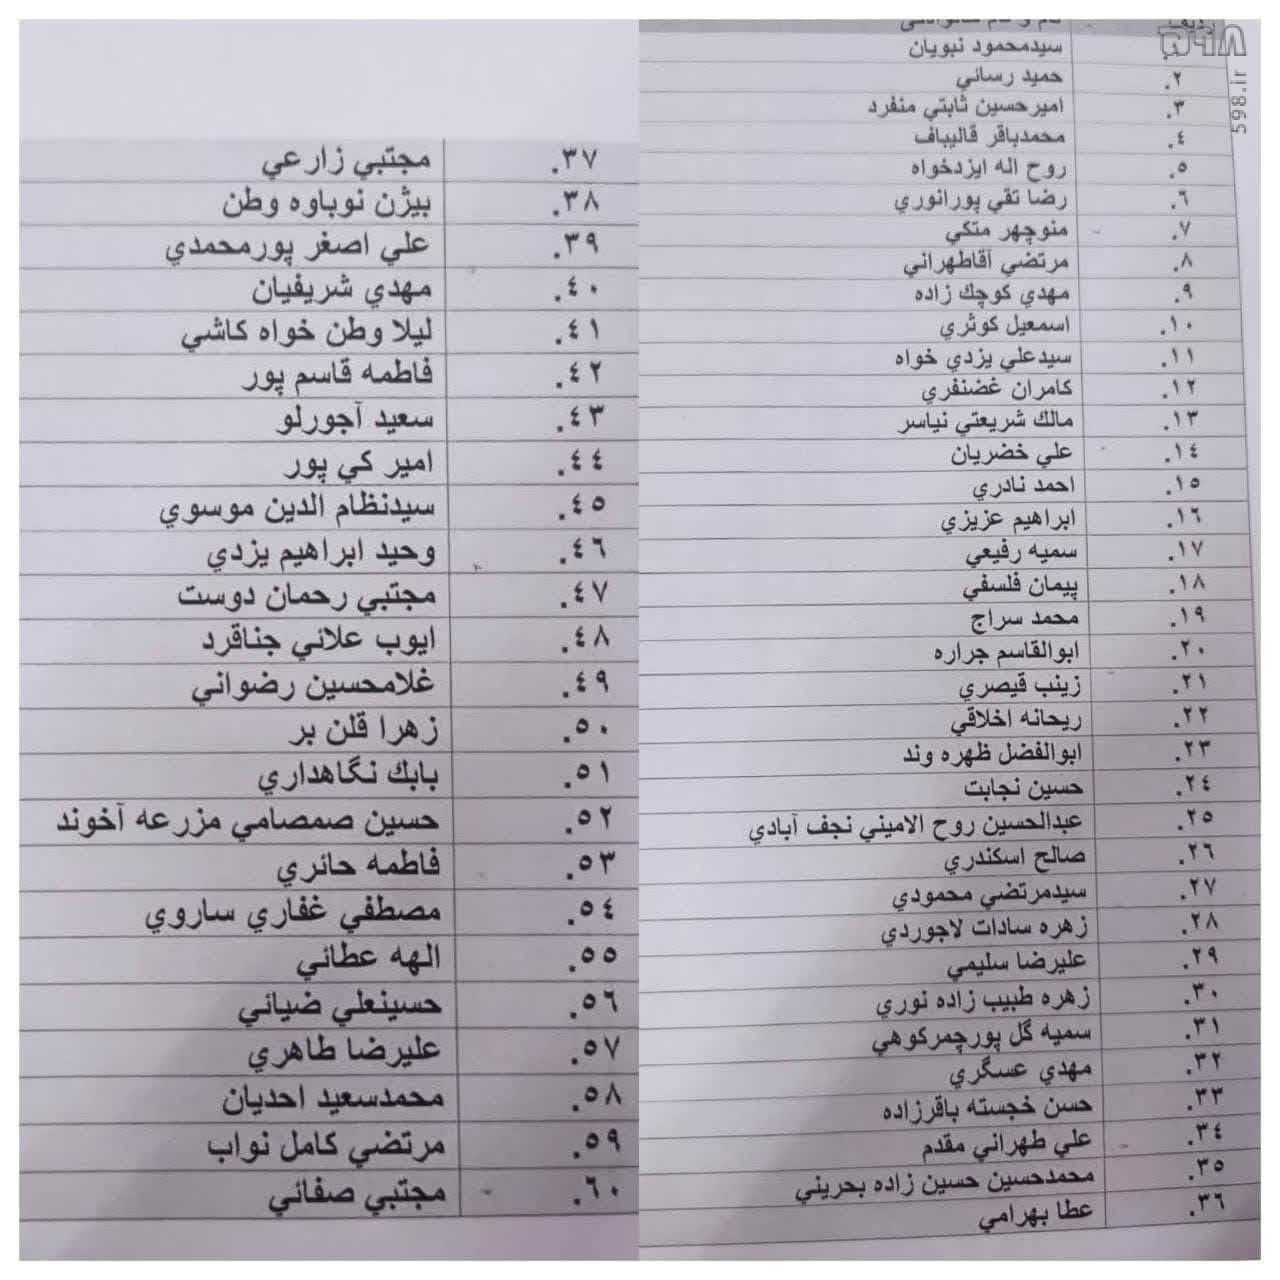 رديف نام و نام خانوادگي
۵۹۸
598.ir
سيدمحمود نبويان
٢. حميد رسائي
٣. اميرحسين ثابتي منفرد
٤. محمدباقر قاليباف
٥. روح اله ايزدخواه
٦. رضا تقي پورانوري
٧. منوچهر متكي
٨. مرتضي آقاطهراني
٩. مهدي كوچك زاده
١٠. اسمعيل كوثري
١١. سيدعلي يزدي خواه
١٢. كامران غضنفري
١٣. مالك شريعتي نياسر
١٤. علي خضريان
١٥. احمد نادري
١٦. ابراهيم عزيزي
١٧. سميه رفيعي
١٨. پيمان فلسفي
١٩. محمد سراج
٢٠. ابوالقاسم جراره
٢١. زينب قيصري
٢٢. ريحانه اخلاقي
٢٣. ابوالفضل ظهره وند
٢٤. حسين نجابت
٢٥. عبدالحسين روح الاميني نجف آبادي
٢٦. صالح اسكندري
٢٧. سيدمرتضي محمودي
٢٨. زهره سادات لاجوردي
٢٩. عليرضا سليمي
٣٠. زهره طبيب زاده نوري
٣١. سميه گل پورچمركوهي
٣٢. مهدي عسگري
٣٣. حسن خجسته باقرزاده
٣٤. علي طهراني مقدم
٣٥. محمدحسين حسين زاده بحريني
٣٦. عطا بهرامي
٣٧. مجتبي زارعي
٣٨. بيژن نوباوه وطن
٣٩. علي اصغر پورمحمدي
٤٠. مهدي شريفيان
٤١. ليلا وطن خواه كاشي
٤٢. فاطمه قاسم پور
٤٣. سعيد آجورلو
٤٤. امير كي پور
٤٥. سيدنظام الدين موسوي
٤٦. وحيد ابراهيم يزدي
٤٧. مجتبي رحمان دوست
٤٨. ايوب علائي جناقرد
٤٩. غلامحسين رضواني
٥٠. زهرا قلن بر
٥١. بابك نگاهداري
٥٢. حسين صمصامي مزرعه آخوند
٥٣. فاطمه حائري
٥٤. مصطفي غفاري ساروي
٥٥. الهه عطائي
٥٦. حسينعلي ضيائي
٥٧. عليرضا طاهري
٥٨. محمدسعيد احديان
٥٩. مرتضي كامل نواب
٦٠. مجتبي صفائي